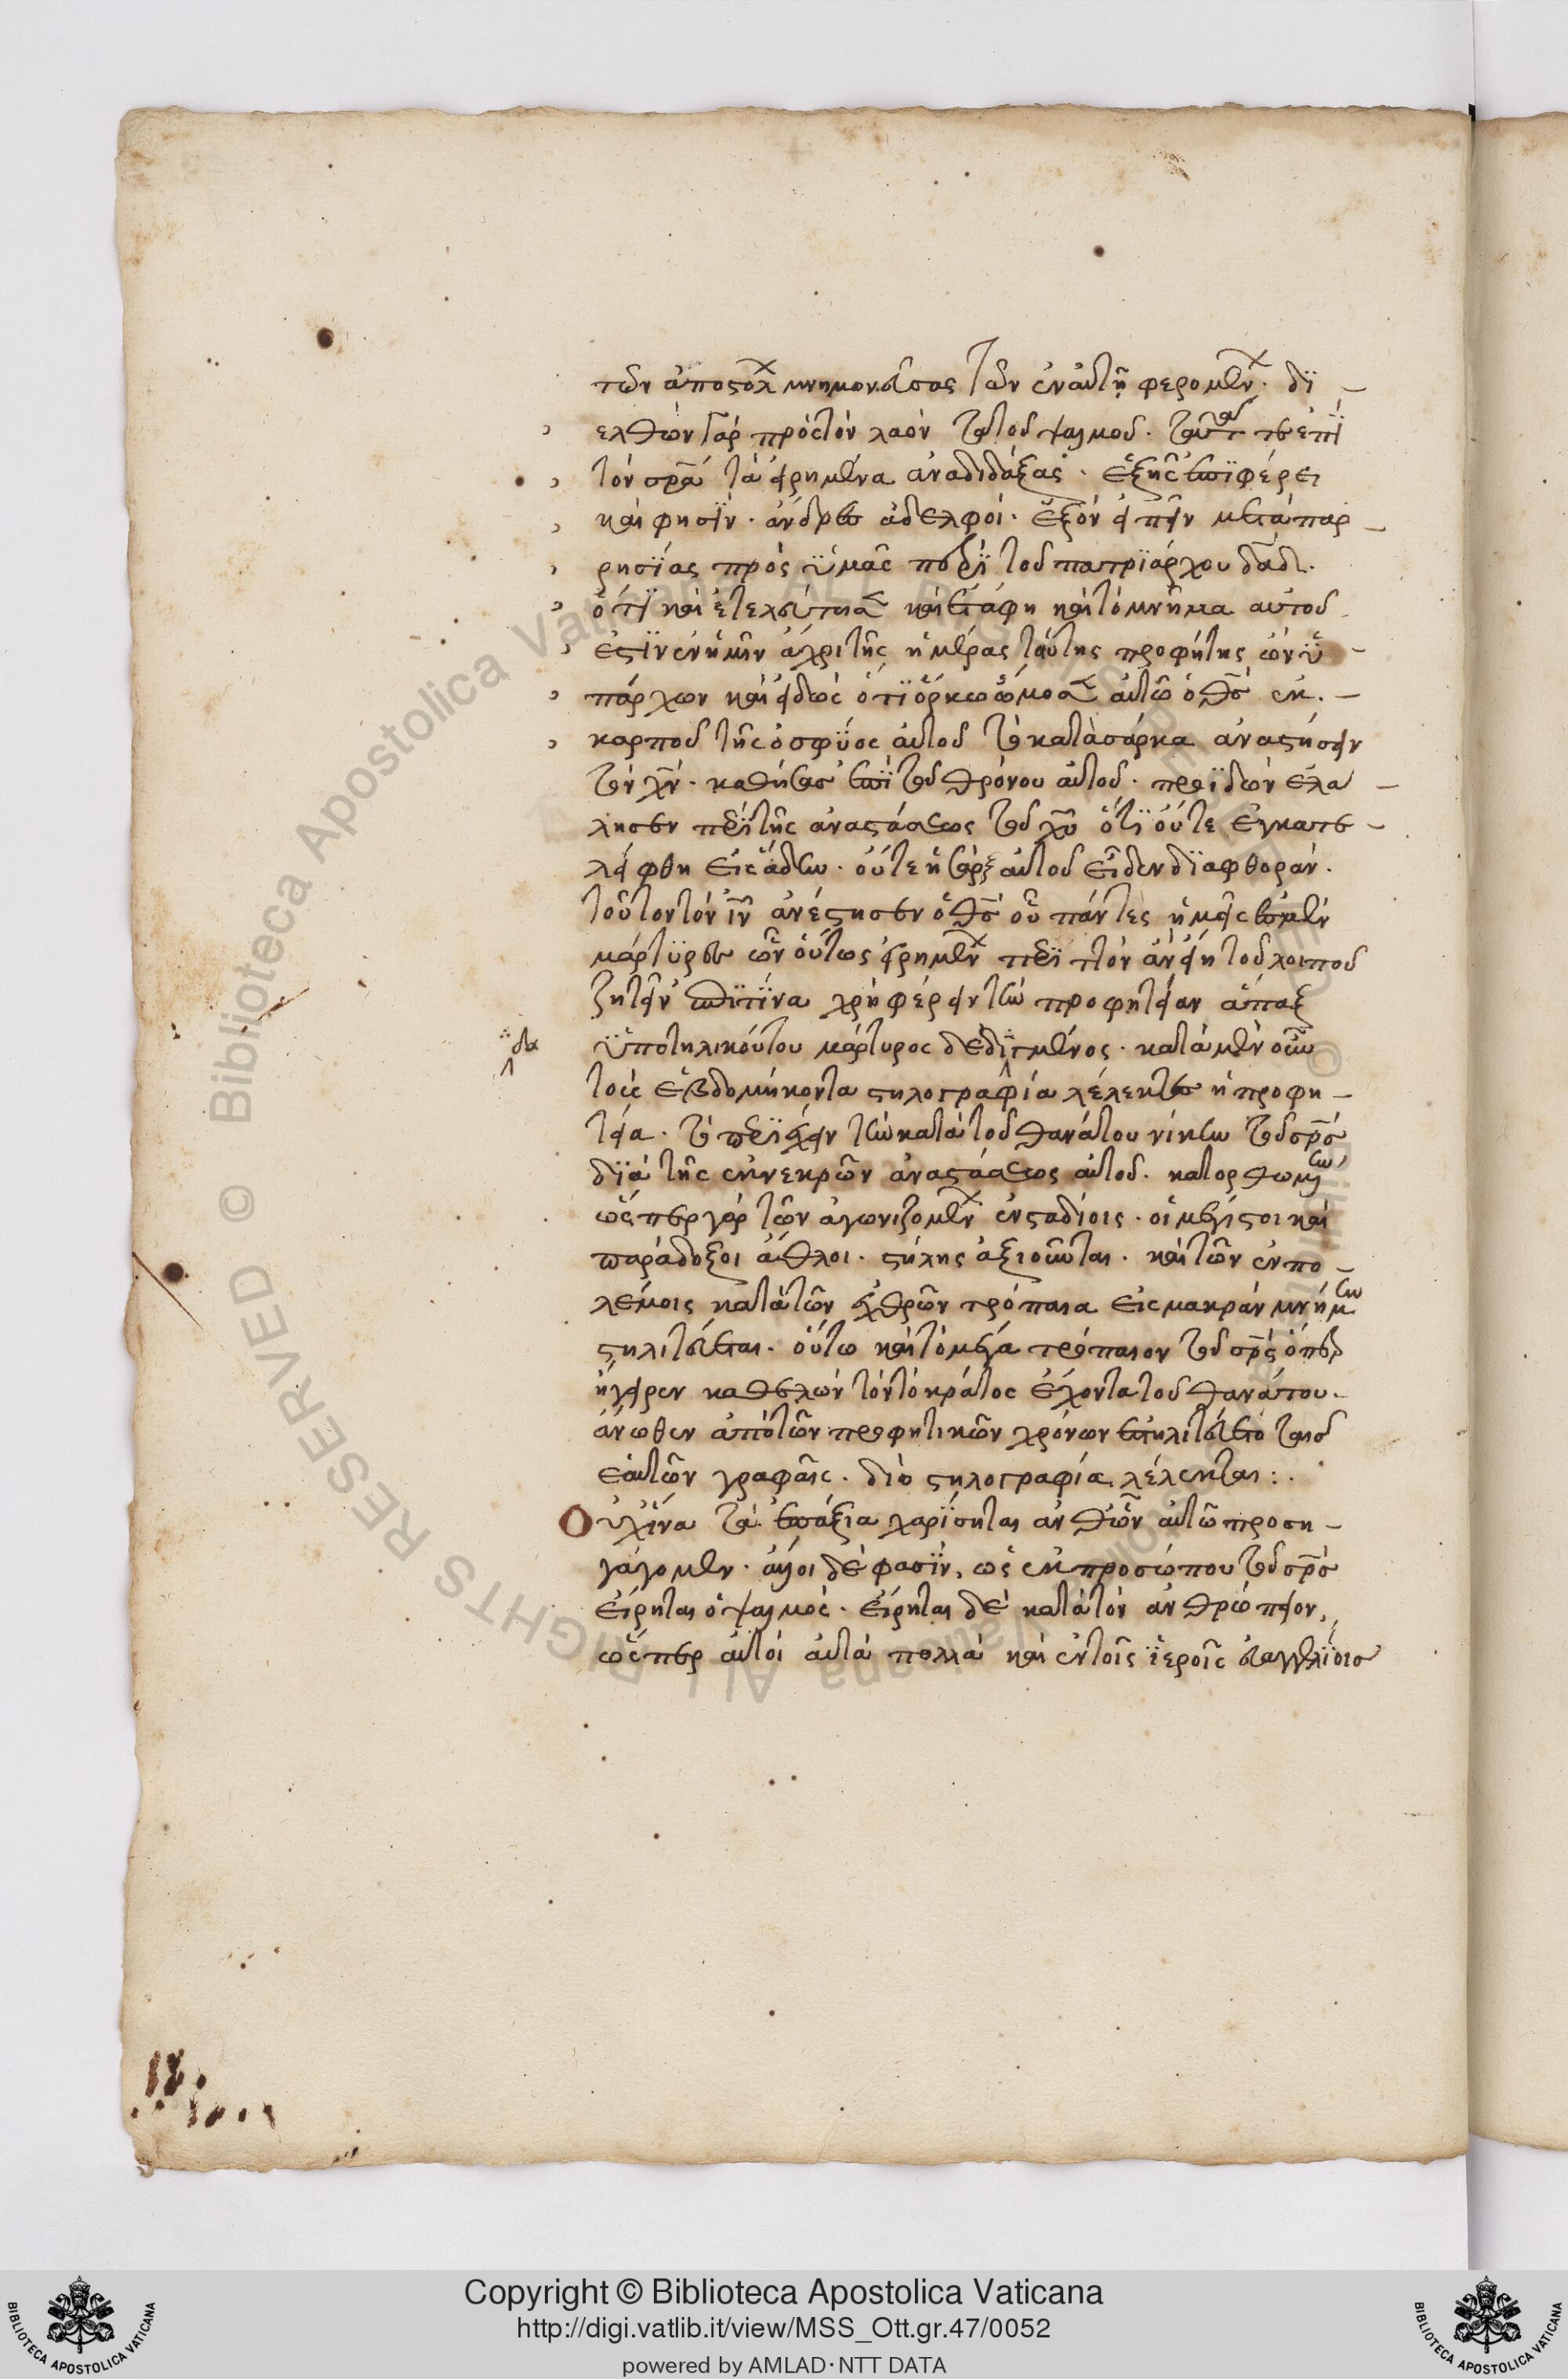 τῶν ἀποστόλων μνημονεύσας τῶν ἐν αὐτῇ φερομένων. δϊ
ελθὼν γὰρ πρὸς τὸν λαὸν τὰ τοῦ ψαλμοῦ. ταῦτα τε ἐπὶ
τὸν σρα τὰ εἰρημένα ἀναδιδάξας. ἑξῆς ἐπϊφέρει
καὶ φησὶν. ἄνδρες ἀδελφοί. ἐξὸν εἰπεῖν μετὰ παρ
ρησίας πρὸς ὑμᾶς περὶ τοῦ πατριάρχου δαδ.
ὅτι καὶ ἐτελεύτησε καὶ ἐτάφη καὶ τὸ μνῆμα αὐτοῦ
ἐστιν ἐν ἡμῖν ἄχρι τῆς ἡμέρας ταύτης προφήτης ὢν ὑ
πάρχων καὶ εἰδὼς ὅτι ὅρκω ὤμοσε αὐτῶ ὁ θς ἐκ
καρποῦ τῆς ὀσφύος αὐτοῦ τὸ κατὰ σάρκα ἀναστήσειν
τὸν χν. καθῆσαι ἐπὶ τοῦ θρόνου αὐτοῦ. προϊδὼν ἐλά
λησεν περὶ τῆς ἀναστάσεως τοῦ χυ ὅτι οὔτε ἐγκατε
λείφθη εἰς ἅδην. οὔτε ἡ σὰρξ αὐτοῦ εἶδεν διαφθοράν.
τοῦτον τὸν ιν ἀνέστησεν ὁ θς οὗ πάντες ἡμεῖς ἐσμὲν
μάρτυρες ὧν οὕτως εἰρημένων περιττὸν ἂν εἴη τοῦ λοιποῦ
ζητεῖν ἐπὶ τίνα χρὴ φέρειν τὴν προφητείαν ἅπαξ
δα
ὑπὸ τηλικούτου μάρτυρος δεδιγμένος. κατὰ μὲν οὖν
τοὺς ἑβδομήκοντα στηλογραφία λέλεκται ἡ προφη
τεία. τὸ περιέχειν τὴν κατὰ τοῦ θανάτου νίκην τοῦ σρς
διὰ τῆς ἐκ νεκρῶν ἀναστάσεως αὐτοῦ. κατορθωμένην
ὥσπερ γὰρ τῶν ἀγωνιζομένων ἐν σταδίοις. οἱ μέγιστοι καὶ
παράδοξοι ἆθλοι. στήλης ἀξιοῦνται. καὶ τῶν ἐν πο
λέμοις κατὰ τῶν ἐχθρῶν τρόπαια εἰς μακρὰν μνήμην
στηλιτεύεται. οὕτω καὶ τὸ μέγα τρόπαιον τοῦ σρς ὅπερ
ἤγειρεν καθελὼν τὸν τὸ κράτος ἔχοντα τοῦ θανάτου.
ἄνωθεν ἀπὸ τῶν προφητικῶν χρόνων ἐστηλιτεύετο ταῖς
ἑαυτῶν γραφαῖς. διὸ στηλογραφία λέλεκται:.
Οὐχ ἵνα τὰ ἐπάξια χαρίσηται ἀνθ ὧν αὐτῶ προση
γάγομεν. ἄλλοι δέ φασὶν, ὡς ἐκ προσώπου τοῦ σρς
εἴρηται ὁ ψαλμός. εἴρηται δὲ κατὰ τὸν ἀνθρώπειον,
ὥσπερ αὐτοὶ αὐτὰ πολλὰ καὶ ἐν τοῖς ἱεροῖς εὐαγγελίοις
Copyright © Biblioteca Apostolica Vaticana
http://digi.vatlib.it/view/MSS_Ott.gr.47/0052
powered by AMLAD·NTT DATA